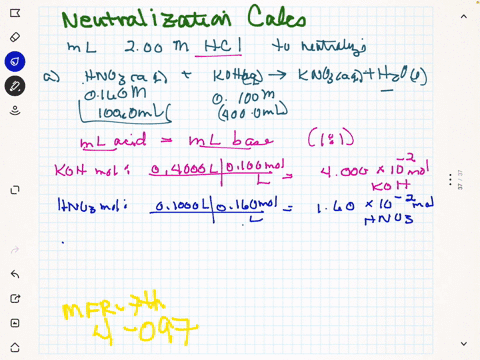 Neutralization Calcs
mL 2.00 M HCl to neutralize
a) HNO3(aq) + KOH(aq) → KNO3(aq) + H2O(l)
0.160M 0.100M
100.0mL (400.0mL)
mL acid = mL base (1:1)
KOH mol: 0.4000L | 0.100mol / L = 4.000 × 10^-2 mol KOH
HNO3 mol: 0.1000L | 0.160mol / L = 1.60 × 10^-2 mol HNO3
MFR-7th
4-097
37 / 37